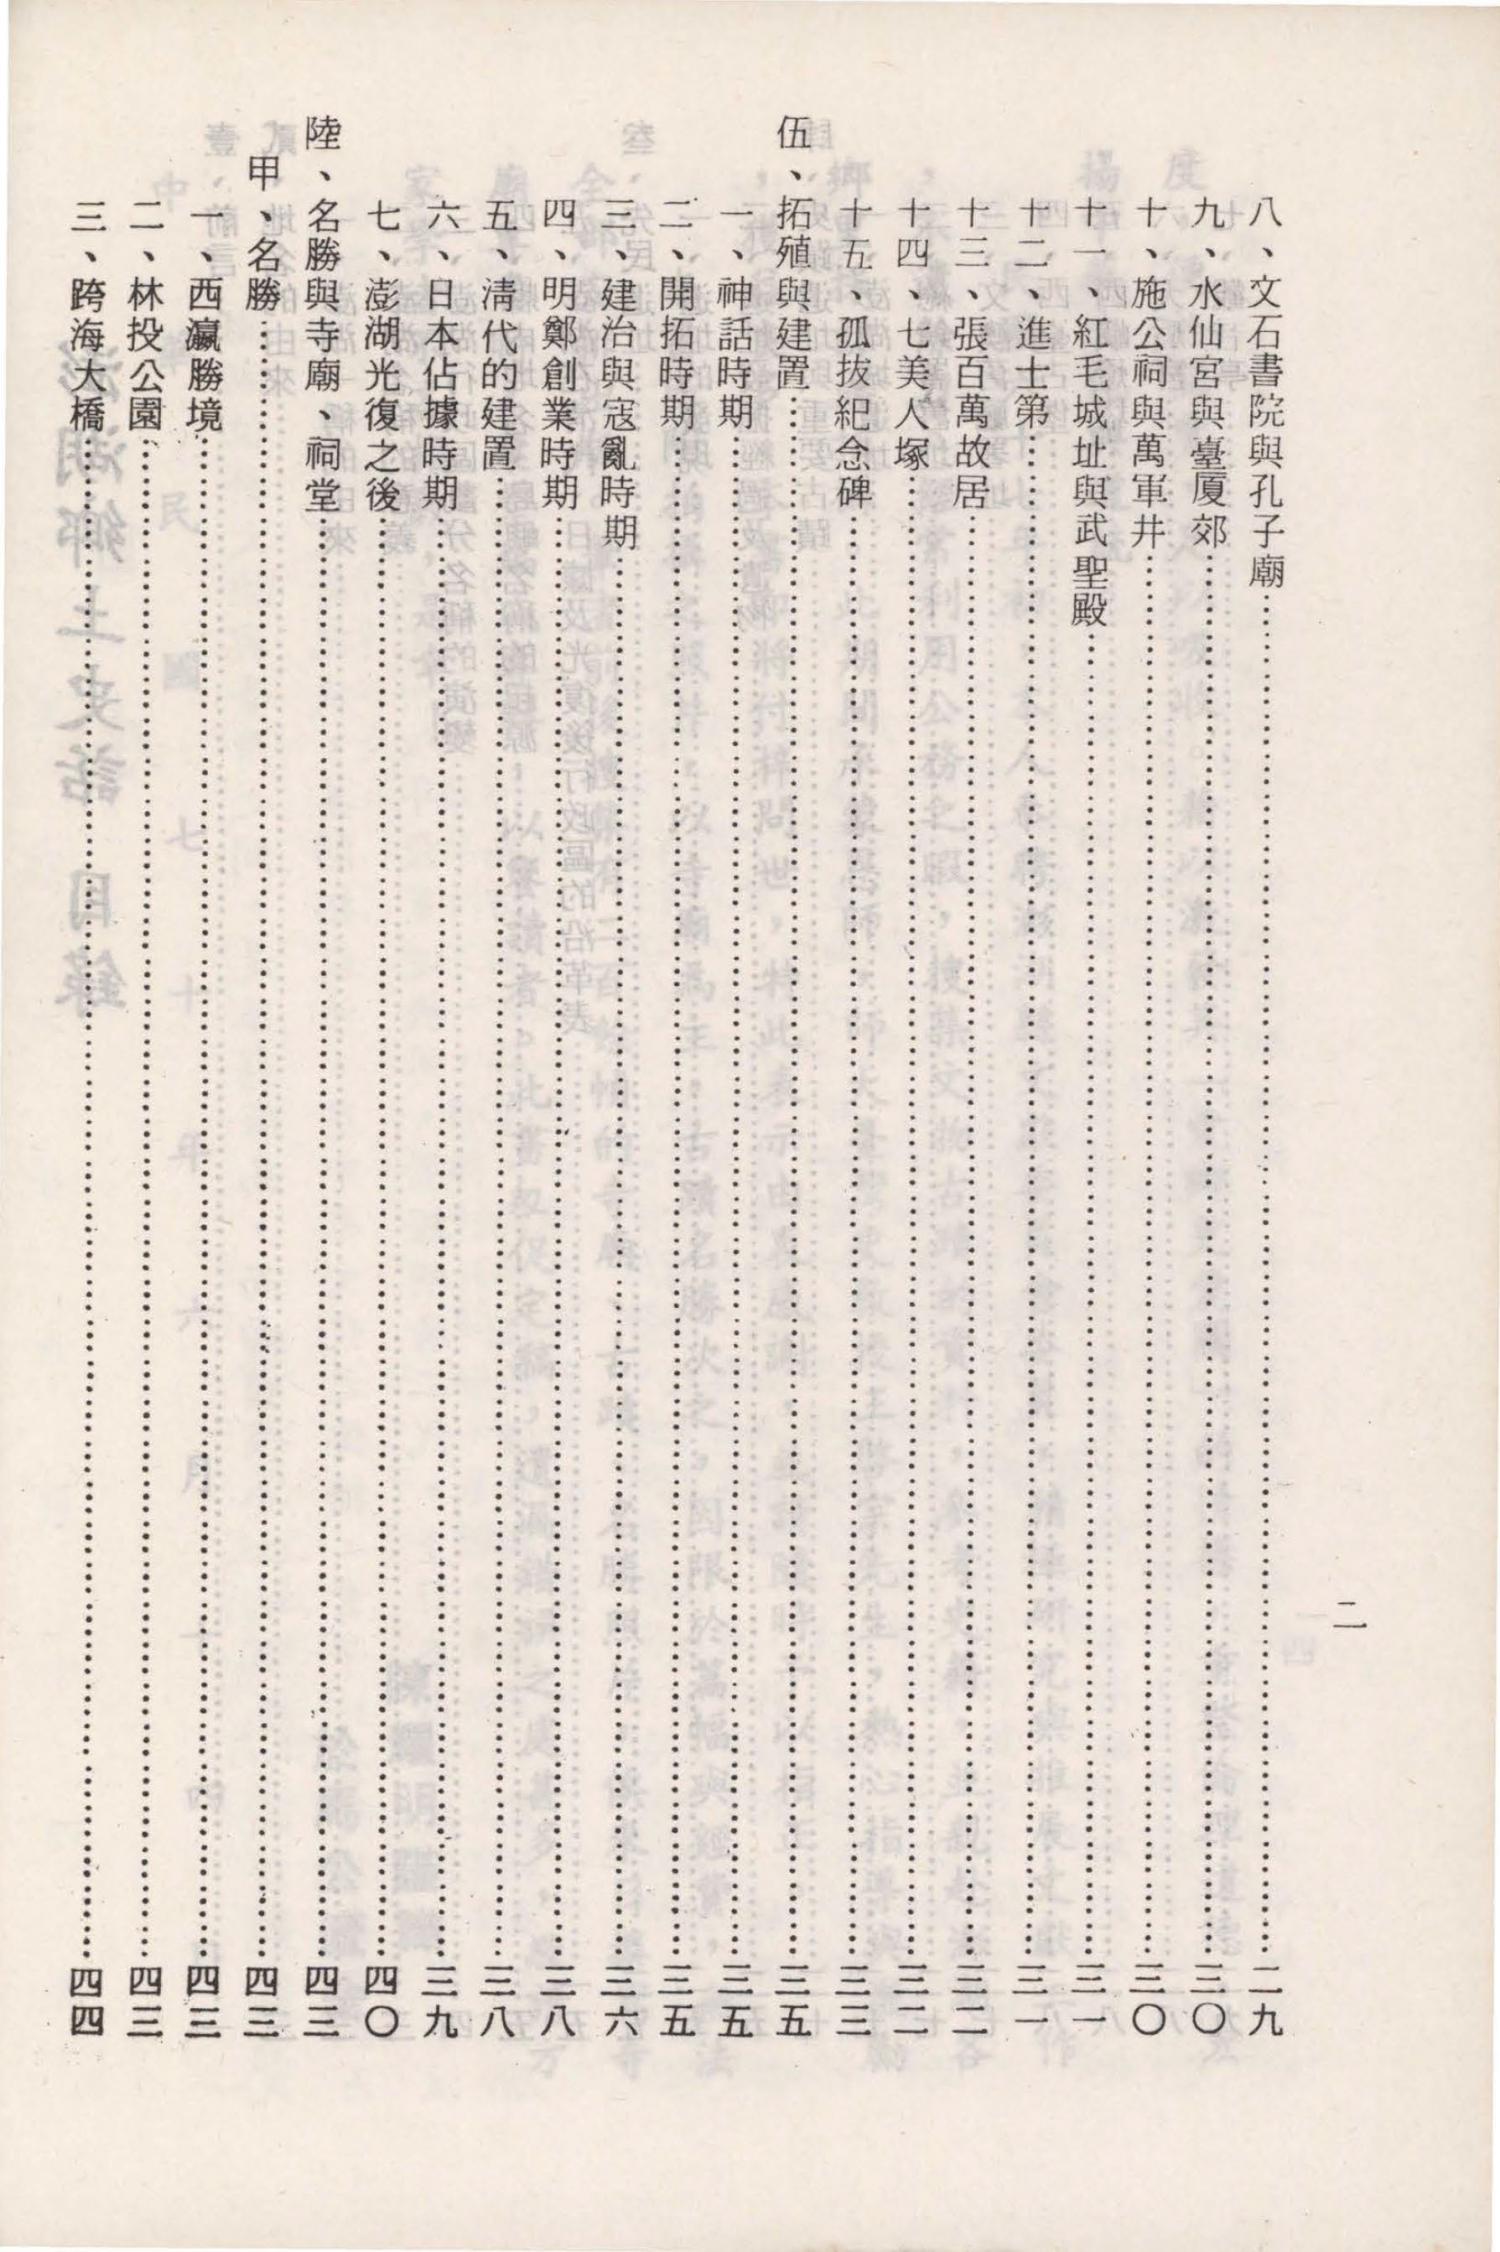 二
八、文石書院與孔子廟……二九
九、水仙宮與臺厦郊……三〇
十、施公祠與萬軍井……三〇
十一、紅毛城址與武聖殿……三一
十二、進士第……三一
十三、張百萬故居……三二
十四、七美人塚……三二
十五、孤拔紀念碑……三三
伍、拓殖與建置……三五
一、神話時期……三五
二、開拓時期……三五
三、建治與寇亂時期……三六
四、明鄭創業時期……三八
五、清代的建置……三八
六、日本佔據時期……三九
七、澎湖光復之後……四〇
陸、名勝與寺廟、祠堂……四三
甲、名勝……四三
一、西瀛勝境……四三
二、林投公園……四三
三、跨海大橋……四四